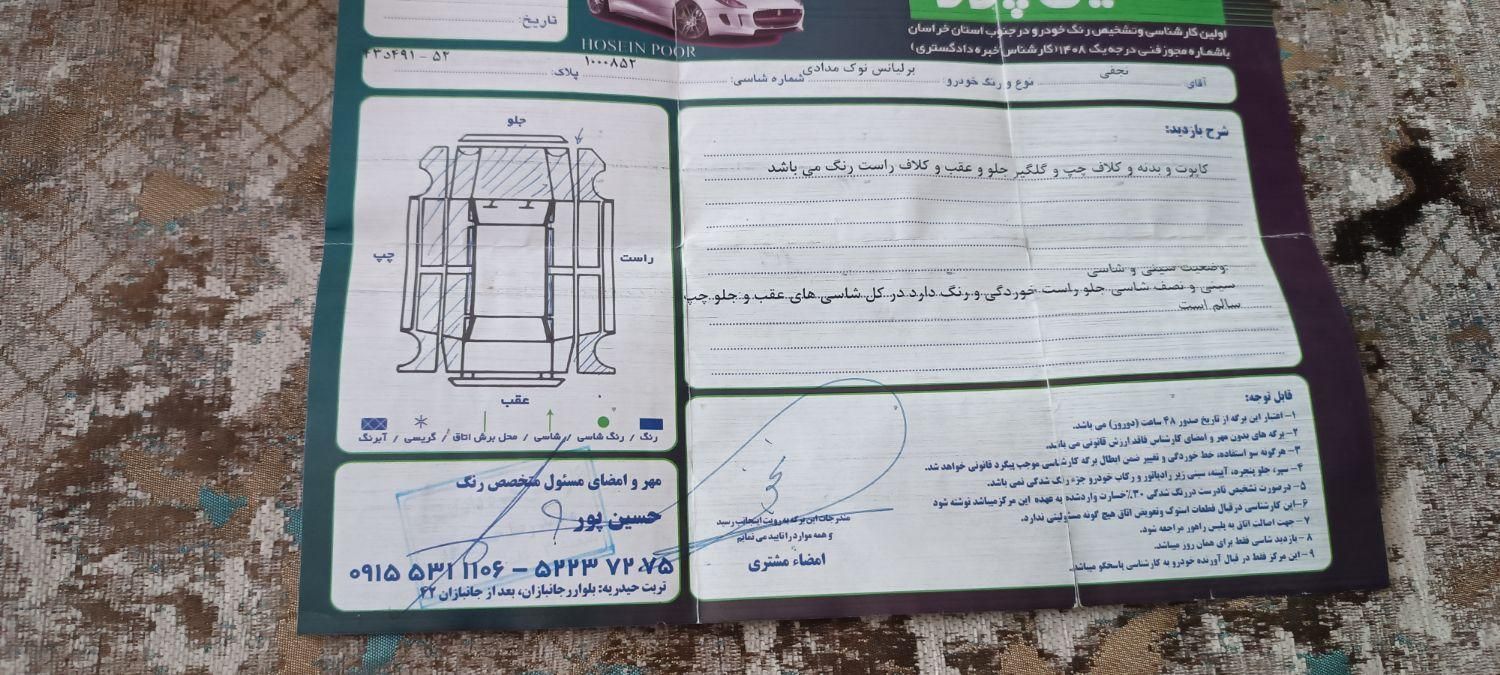 اولین کارشناسی و تشخیص رنگ خودرو در جنوب استان خراسان
باشماره مجوز فنی درجه یک ۱۴۰۸ (کارشناس خبره دادگستری)
تاریخ:
HOSEIN POOR
آقای: نجفی نوع و رنگ خودرو: برلیانس نوک مدادی شماره شاسی: ۱۰۰۰۸۵۲ پلاک: ۵۲ - ۴۹۱د۴۳
شرح بازدید:
کاپوت و بدنه و کلاف چپ و گلگیر جلو و عقب و کلاف راست رنگ می باشد
وضعیت سینی و شاسی
سینی و نصف شاسی جلو راست خوردگی و رنگ دارد در کل شاسی های عقب و جلو چپ
سالم است
جلو
چپ
راست
عقب
رنگ / رنگ شاسی / شاسی / محل برش اتاق / گریسی / آبرنگ
مهر و امضای مسئول متخصص رنگ
حسین پور
0915 531 1106 - 5223 72 75
تربت حیدریه: بلوار جانبازان، بعد از جانبازان ۲۲
نجفی
مندرجات این برگه به رویت اینجانب رسید
و همه موارد را تایید می نمایم
امضاء مشتری
قابل توجه:
۱- اعتبار این برگه از تاریخ صدور ۴۸ ساعت (دوروز) می باشد.
۲- برگه های بدون مهر و امضای کارشناس فاقد ارزش قانونی می باشد.
۳- هرگونه سو استفاده، خط خوردگی و تغییر ضمن ابطال برگه کارشناسی موجب پیگرد قانونی خواهد شد.
۴- سپر، جلو پنجره، آیینه، سینی زیر رادیاتور و رکاب خودرو جزء رنگ شدگی نمی باشد.
۵- درصورت تشخیص نادرست در رنگ شدگی ۳۰٪ خسارت وارد شده به عهده این مرکز میباشد نوشته شود
۶- این کارشناسی در قبال قطعات استوک و تعویض اتاق هیچ گونه مسئولیتی ندارد.
۷- جهت اصالت اتاق به پلیس راهور مراجعه شود.
۸- بازدید شاسی فقط برای همان روز میباشد.
۹- این مرکز فقط در قبال آورنده خودرو به کارشناسی پاسخگو میباشد.